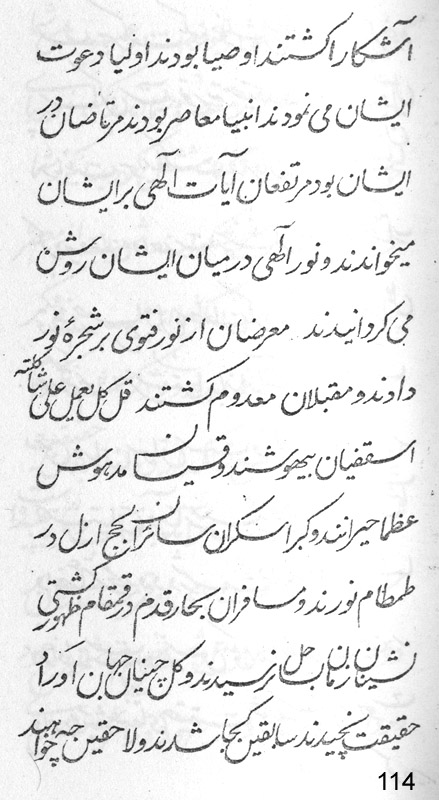 آشکارا کشتند اوصیا بودند اولیا دعوت
ایشان می نمودند انبیا معاصر بودند مرتاضان در
ایشان بود مرتفعان آیات الهی بر ایشان
میخواندند و نور الهی در میان ایشان روشن
می کردانیدند معرضان از نور فتوی بر شجرهٔ نور
دادند و مقبلان معدوم کشتند قل کل یعمل علی شاکلته
اسقفیان بیهوشند و قسیسان مدهوش
عظما حیرانند و کبرا سکران سائران لجج ازل در
طمطام نورند و مسافران بحار قدم در قمقام ظهور کشتی
نشینان بساحل نرسیدند و کل چینان جهان اوراد
حقیقت نچیدند سابقین کجا شدند ولاحقین چه خواهند
114